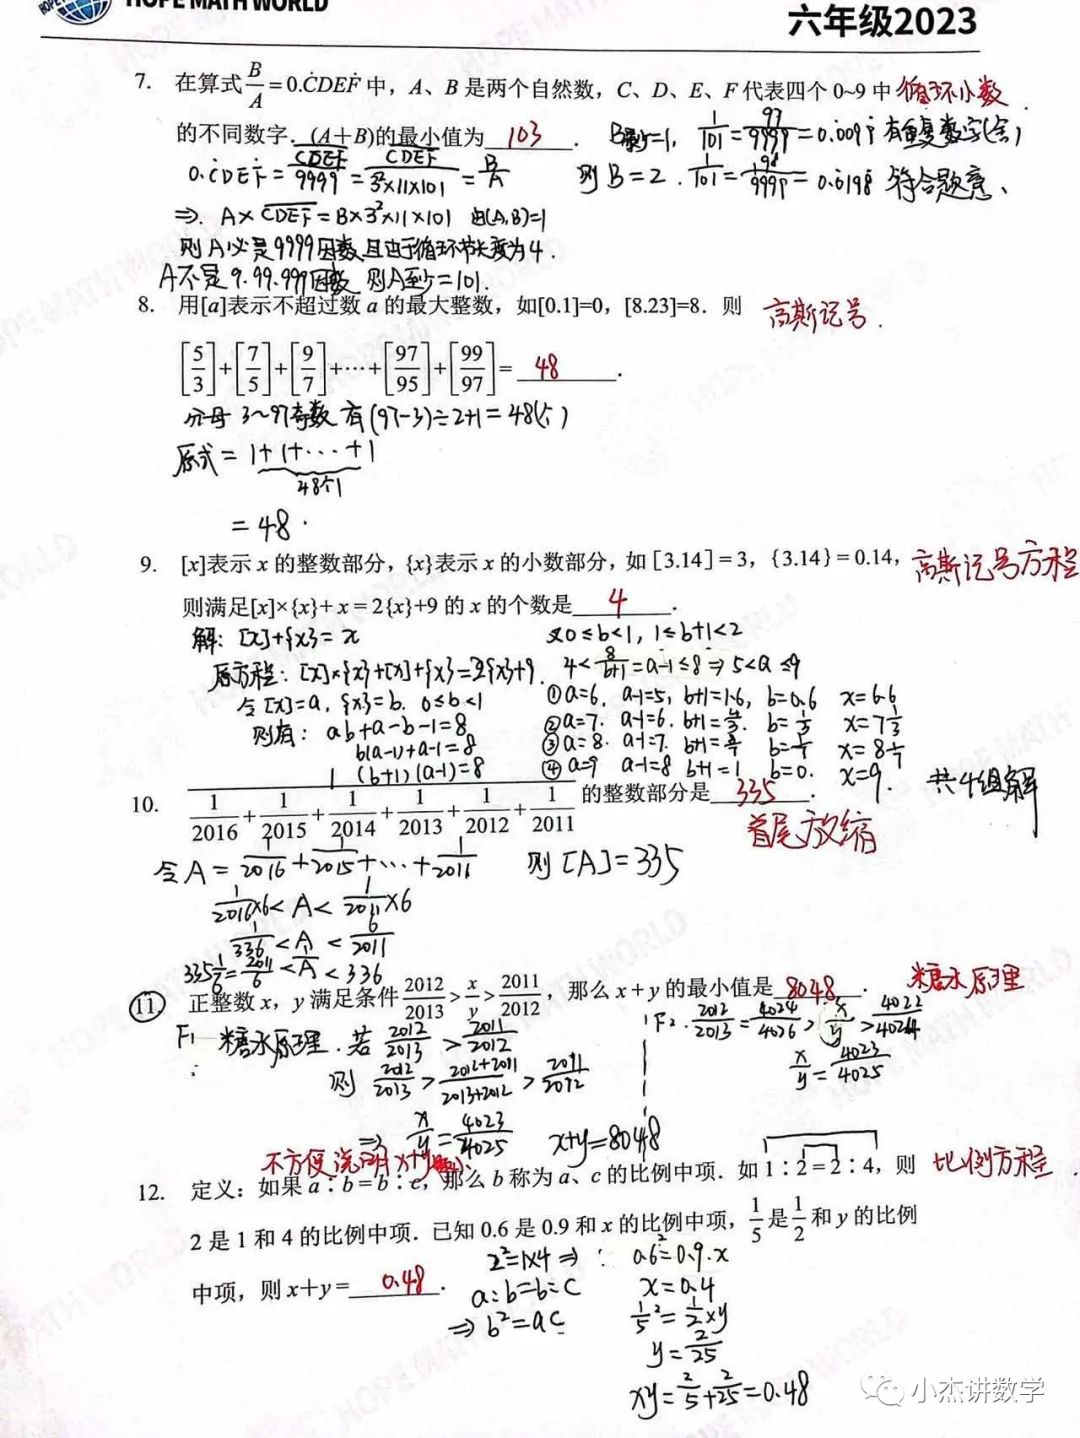 HOPE MATH WORLD
六年级2023
7. 在算式B/A=0.ĊDEḞ中，A、B是两个自然数，C、D、E、F代表四个0~9中 循环小数
的不同数字．(A＋B)的最小值为 103 ． B最少=1, 1/101=99/9999=0.0̇099̇ 有重复数字(舍)
0.ĊDEḞ=CDEF/9999=CDEF/3²×11×101=B/A 则B=2. 2/101=198/9999=0.0̇198̇ 符合题意、
⇒. A×CDEF=B×3²×11×101 由(A,B)=1
则A必是9999因数,且由于循环节长度为4.
A不是9.99.999因数 则A至少=101.
8. 用[a]表示不超过数a的最大整数，如[0.1]=0，[8.23]=8．则 高斯记号.
[5/3]+[7/5]+[9/7]+⋯+[97/95]+[99/97]= 48 ．
分母3~97奇数 有(97-3)÷2+1=48(个)
原式= 1+1+···+1
48个1
=48.
9. [x]表示x的整数部分，{x}表示x的小数部分，如[3.14]=3，{3.14}=0.14， 高斯记号方程
则满足[x]×{x}+x=2{x}+9的x的个数是 4 ．
解: [x]+{x}=x 又0≤b<1, 1≤b+1<2
原方程: [x]×{x}+[x]+{x}=2{x}+9. 4<8/b+1=a-1≤8⇒5<a≤9
令[x]=a, {x}=b. 0≤b<1 ①a=6. a-1=5, b+1=1.6, b=0.6 x=6.6
则有: ab+a-b-1=8 ②a=7. a-1=6. b+1=4/3. b=1/3 x=7 1/3
b(a-1)+a-1=8 ③a=8. a-1=7. b+1=8/7 b=1/7 x=8 1/7
(b+1)(a-1)=8 ④a=9 a-1=8 b+1=1 b=0. x=9. 共4组解
10. 1/(1/2016+1/2015+1/2014+1/2013+1/2012+1/2011) 的整数部分是 335 ．
首尾放缩
令A=1/2016+1/2015+···+1/2011 则[A]=335
1/2016×6<A<1/2011×6
1/336<A<6/2011
335 1/6=2011/6<1/A<336
11. 正整数x，y满足条件2012/2013>x/y>2011/2012，那么x+y的最小值是 8048 ． 糖水原理
F1 糖水原理. 若2012/2013>2011/2012 F2. 2012/2013=4024/4026>x/y>4022/4024
则2012/2013>2012+2011/2013+2012>2011/2012 x/y=4023/4025
⇒x/y=4023/4025 x+y=8048
不方便说明x+y最小.
12. 定义：如果a∶b=b∶c，那么b称为a、c的比例中项．如1∶2=2∶4，则 比例方程
2是1和4的比例中项．已知0.6是0.9和x的比例中项，1/5是1/2和y的比例
中项，则x＋y= 0.48 ．
2²=1×4⇒ ∵ 0.6²=0.9.x
a:b=b:c x=0.4
⇒b²=ac 1/5²=1/2×y
y=2/25
xy=2/5+2/25=0.48
小杰讲数学